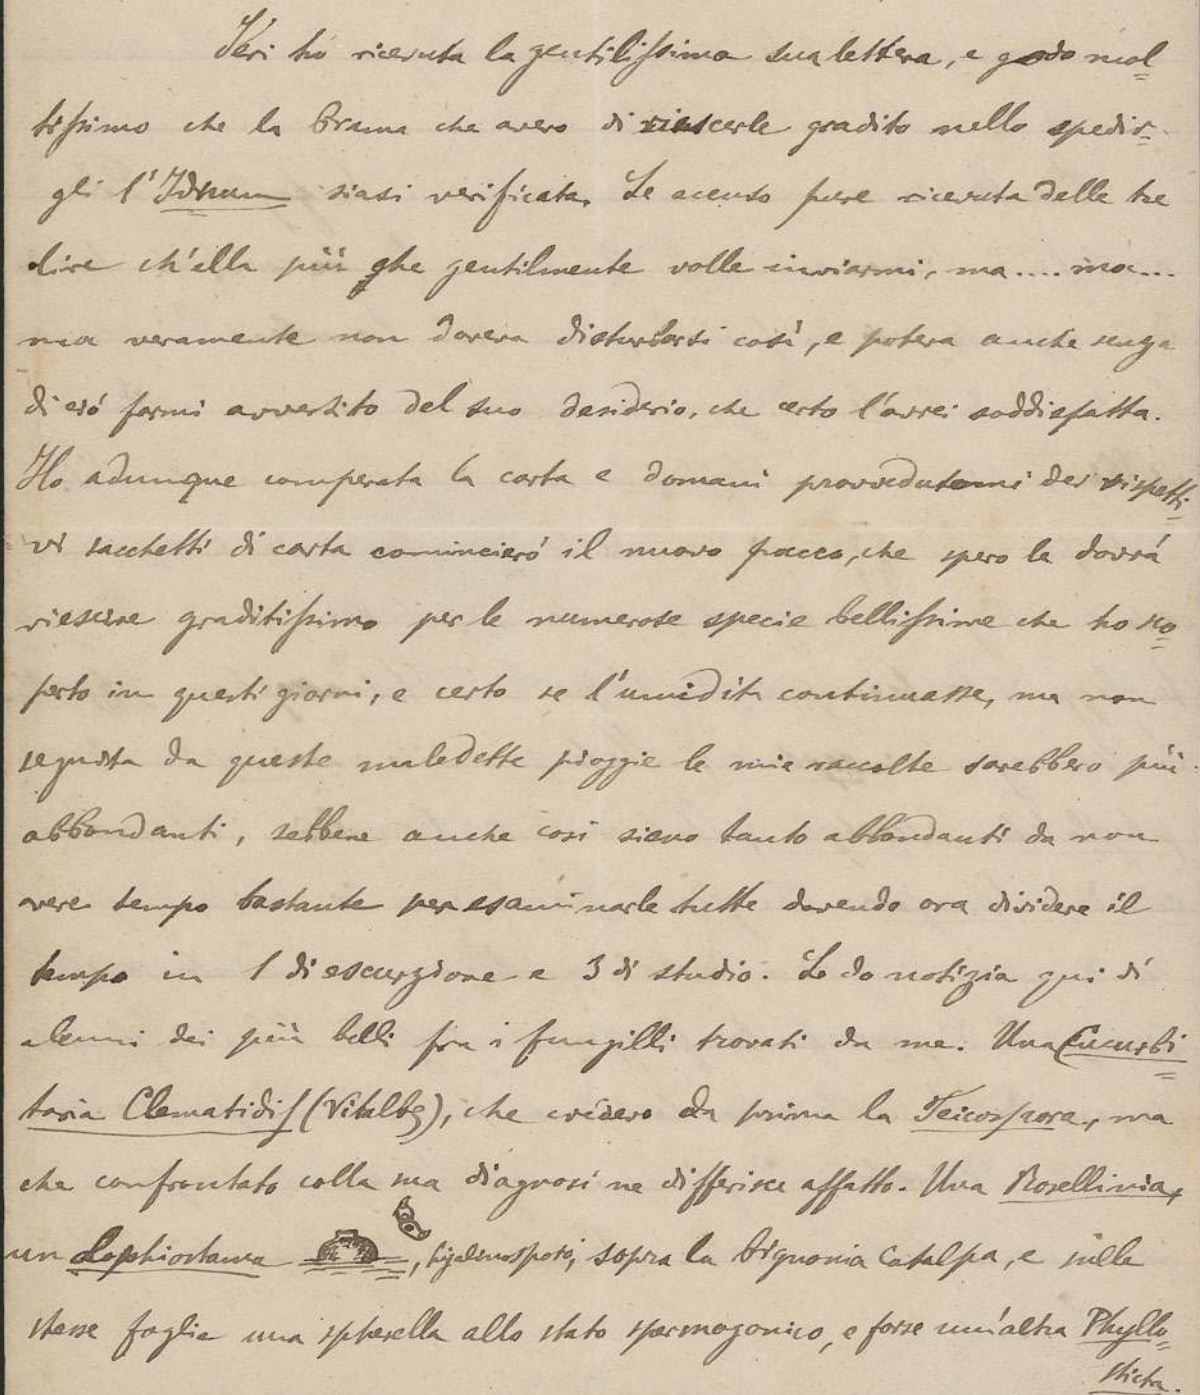 Jeri ho ricevuta la gentilissima sua lettera, e godo mol=
tissimo che la brama che avevo di riescerle gradito nello spedir=
gli l'Idnum siasi verificata. Le accuso pure ricevuta delle tre
lire ch'ella più che gentilmente volle inviarmi, ma.... ma...
ma veramente non doveva disturbarsi così, e poteva anche senza
di ciò farmi avvertito del suo desiderio, che certo l'avrei soddisfatta.
Ho adunque comperata la carta e domani provvedutomi dei rispetti=
vi sacchetti di carta comincierò il nuovo pacco, che spero le dovrà
riescire graditissimo per le numerose specie bellissime che ho sco=
perto in questi giorni, e certo se l'umidità continuasse, ma non
seguita da queste maledette pioggie le mie raccolte sarebbero più
abbondanti, sebbene anche così sieno tanto abbondanti da non
avere tempo bastante per esaminarle tutte dovendo ora dividere il
tempo in 1 di escurzione e 3 di studio. Le do notizia qui di
alcuni dei più belli fra i fungilli trovati da me. Una Cucurbi=
taria Clematidis (Vitalbę), che credevo da prima la Teicospora, ma
che confrontato colla sua diagnosi ne differisce affatto. Una Rosellinia,
un Lophiostoma, hyalinospora, sopra la bignonia Catalpa, e sulle
stesse foglie una spherella allo stato spermogonico, e forse un'altra Phyllo=
sticta.